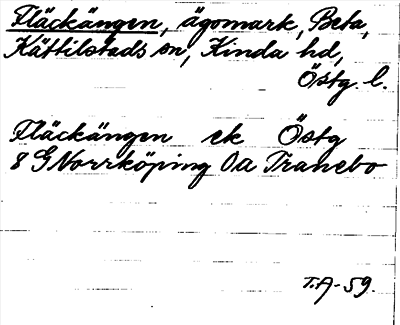 Fläckängen, ägomark, Beta,
Kättilstads sn, Kinda hd,
Östg. l.
Fläckängen ek Östg
8 G Norrköping 0a Tranebo
T.A-59.